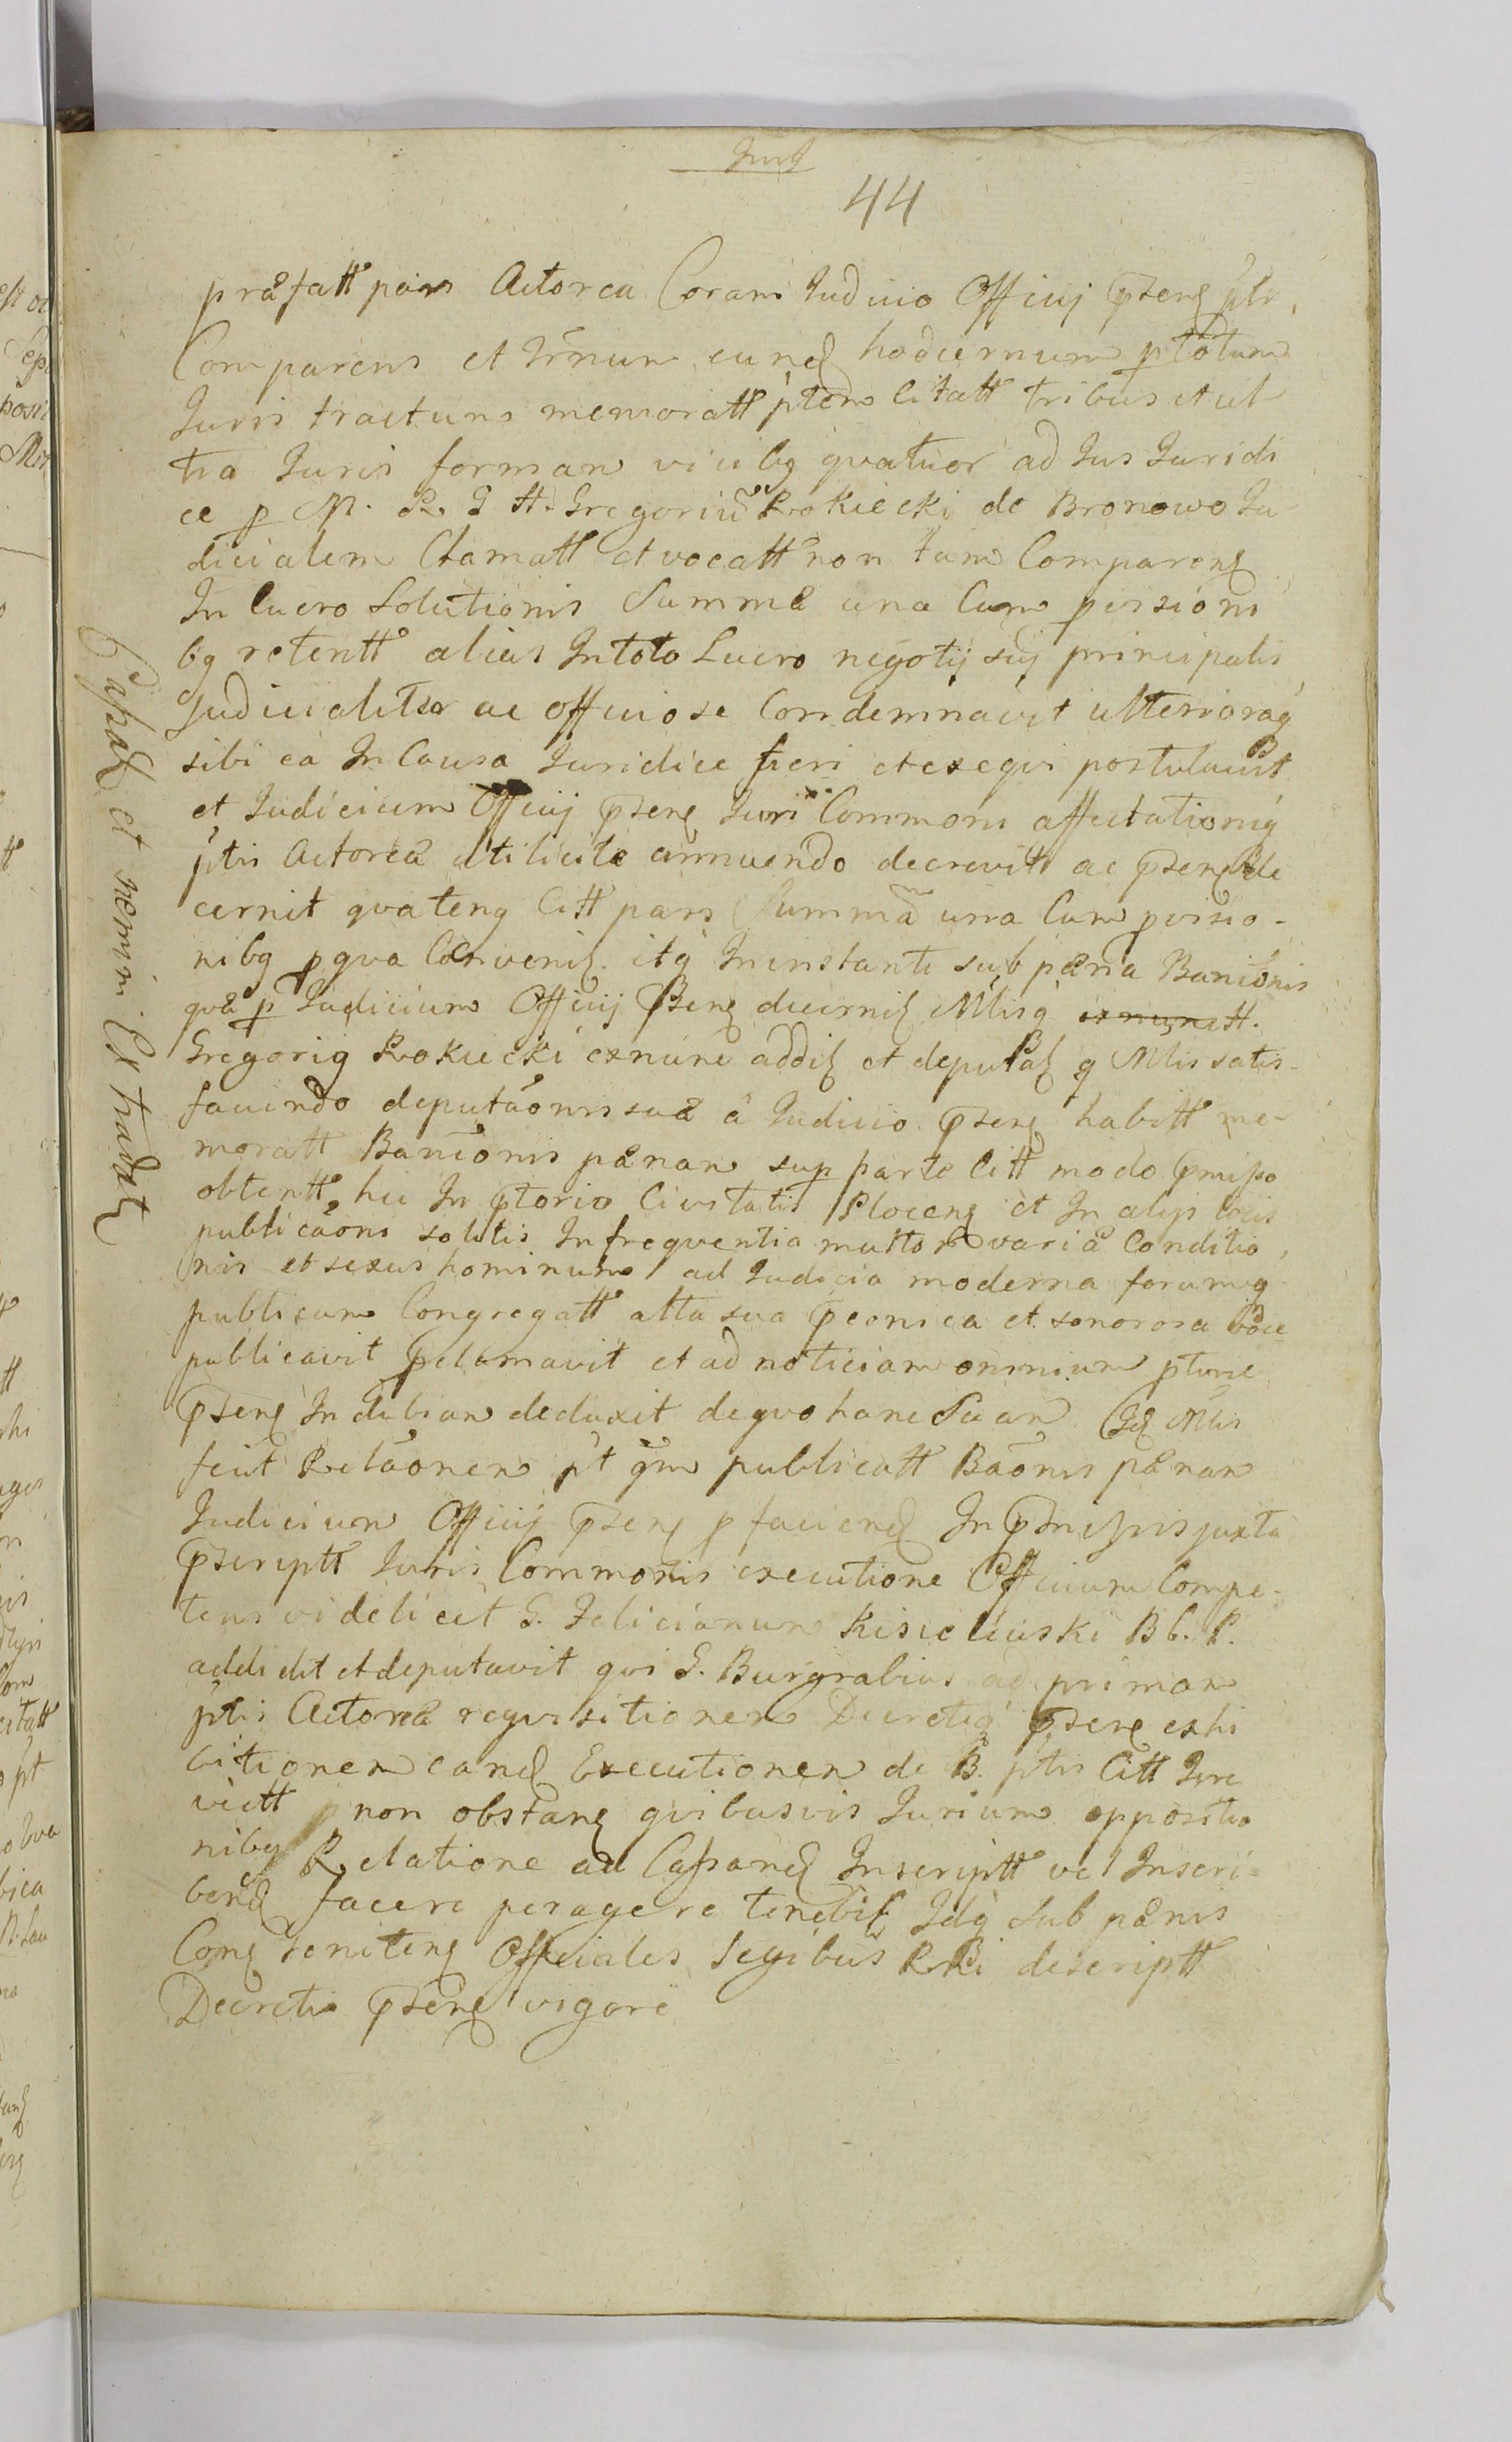 44
præfatt pars Actorea Coram Iudicio Officij pñseng ptr
Comparens et Trñnum eund hodiernum ptotum
Iuris tractum memoratt ptem Citatt tribus et ul
tra Iuris formam vicibg qvatuor ad Ius Iuridi
ce p M. R. G H. Gregoriū Rokicki de Bronowo Iu
dicialem Clamatt et vocatt non tam Compareng
In lucro Solutionis Summæ una Cum pvisioni
bg retentt alias In toto Lucro negotij sui principalis
Judicialiter ac officiose Condemnavit ulteriorag
sibi ea In Causa Iuridice fieri et exeqvi postulavit
et Iudicium Officij pñseng Iuri Commoni affectationig
ptis Actoreæ utilicite annuendo decrevitt ac pñseng de
cernit qvateng Citt pars Summā una Cum pvisio-
nibg pqva Convenit itg In instanti sub pæna Banionis
qvæ p Iudicium Officij Pñseng decernit Mlisq exnunc H.
Gregorig Rokicki exnunc addit et deputat q Mlis satis-
faciendo deputāonis suæ â Iudicio pñseng habitt me-
moratt Banionis pænam sup parte Citt modo pmisso
obtentt hic In ptorio Civitatis Ploceng et In alijs locis
publicāoni solitis In freqventia multor variæ Conditio
nis et sexus hominum ad Iudicia moderna forumq
publicum Congregatt alta sua pconica et sonorosa voce
publicavit pclamavit et ad noticiam omnium ptune
pñseng Indubiam deduxit deqvo hanc Suam Idq Mlis
fecit Relāonem pt qm publicatt Bāonis pænam
Iudicium Officij pñseng p faciend In pñmissis juxta
pscriptt Iuris Commonis executione Officium Compe-
tens videlicet G. Felicianum Kisieliński Bb. P.
addidit et deputavit qvi G. Burgrabius ad primam
ptis Actoreæ reqvisitionem Decretiq pñseng exhi
bitionem eand Executionem de B. ptis Citt Iure
victt non obstang qvibusvis Iurium oppositio
nibg Relatione ad Cassand Inscriptt vel Inscri-
bend facere peragere tenebit Idq sub pænis
Cong reniteng Officiales legibus Rni descriptt
Decreti pñseng vigore
et nemini Extradat